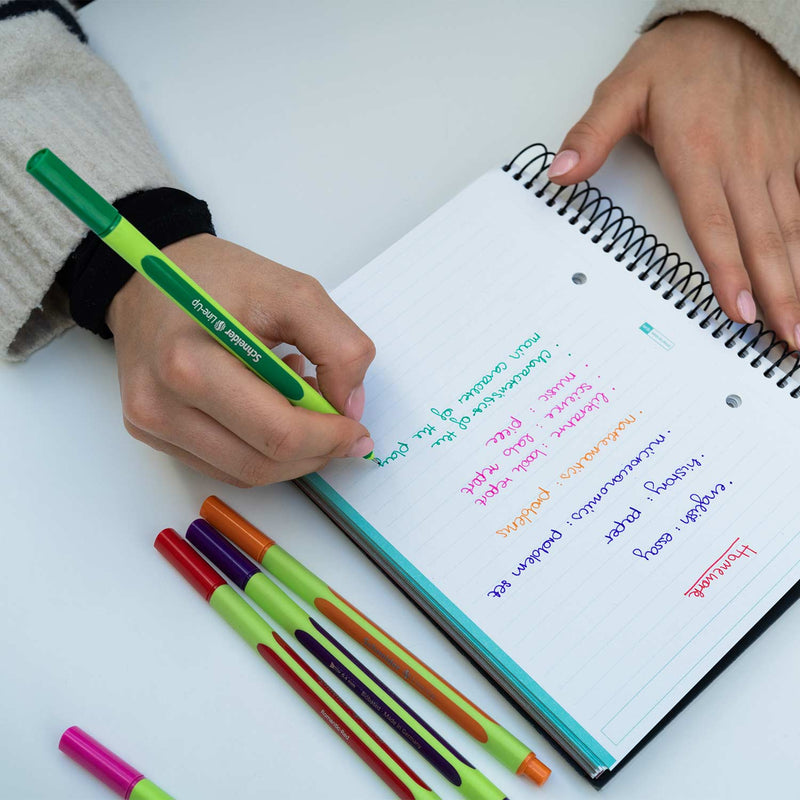 Homework
· english : essay
· history : paper
· microeconomics : problem set
· mathematics : problems
· literature : book report
· science : lab report
· music : piece
· characteristics of the
main caracter of the play
Schneider Line-Up
Made in Germany
Romantic Red